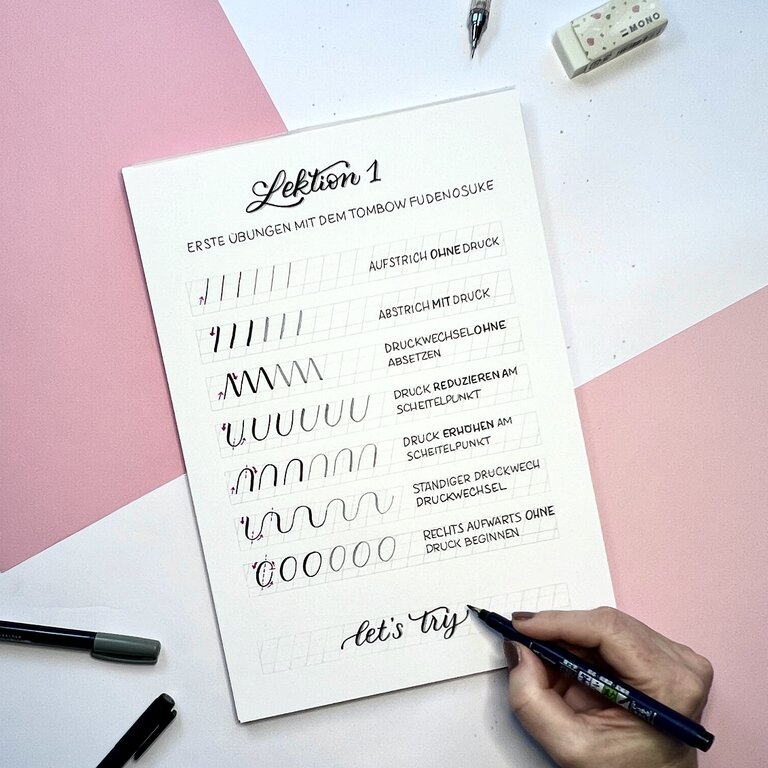 Lektion 1
ERSTE ÜBUNGEN MIT DEM TOMBOW FUDENOSUKE
AUFSTRICH OHNE DRUCK
ABSTRICH MIT DRUCK
DRUCKWECHSEL OHNE
ABSETZEN
DRUCK REDUZIEREN AM
SCHEITELPUNKT
DRUCK ERHÖHEN AM
SCHEITELPUNKT
STÄNDIGER DRUCKWECH
DRUCKWECHSEL
RECHTS AUFWÄRTS OHNE
DRUCK BEGINNEN
let's try
MONO